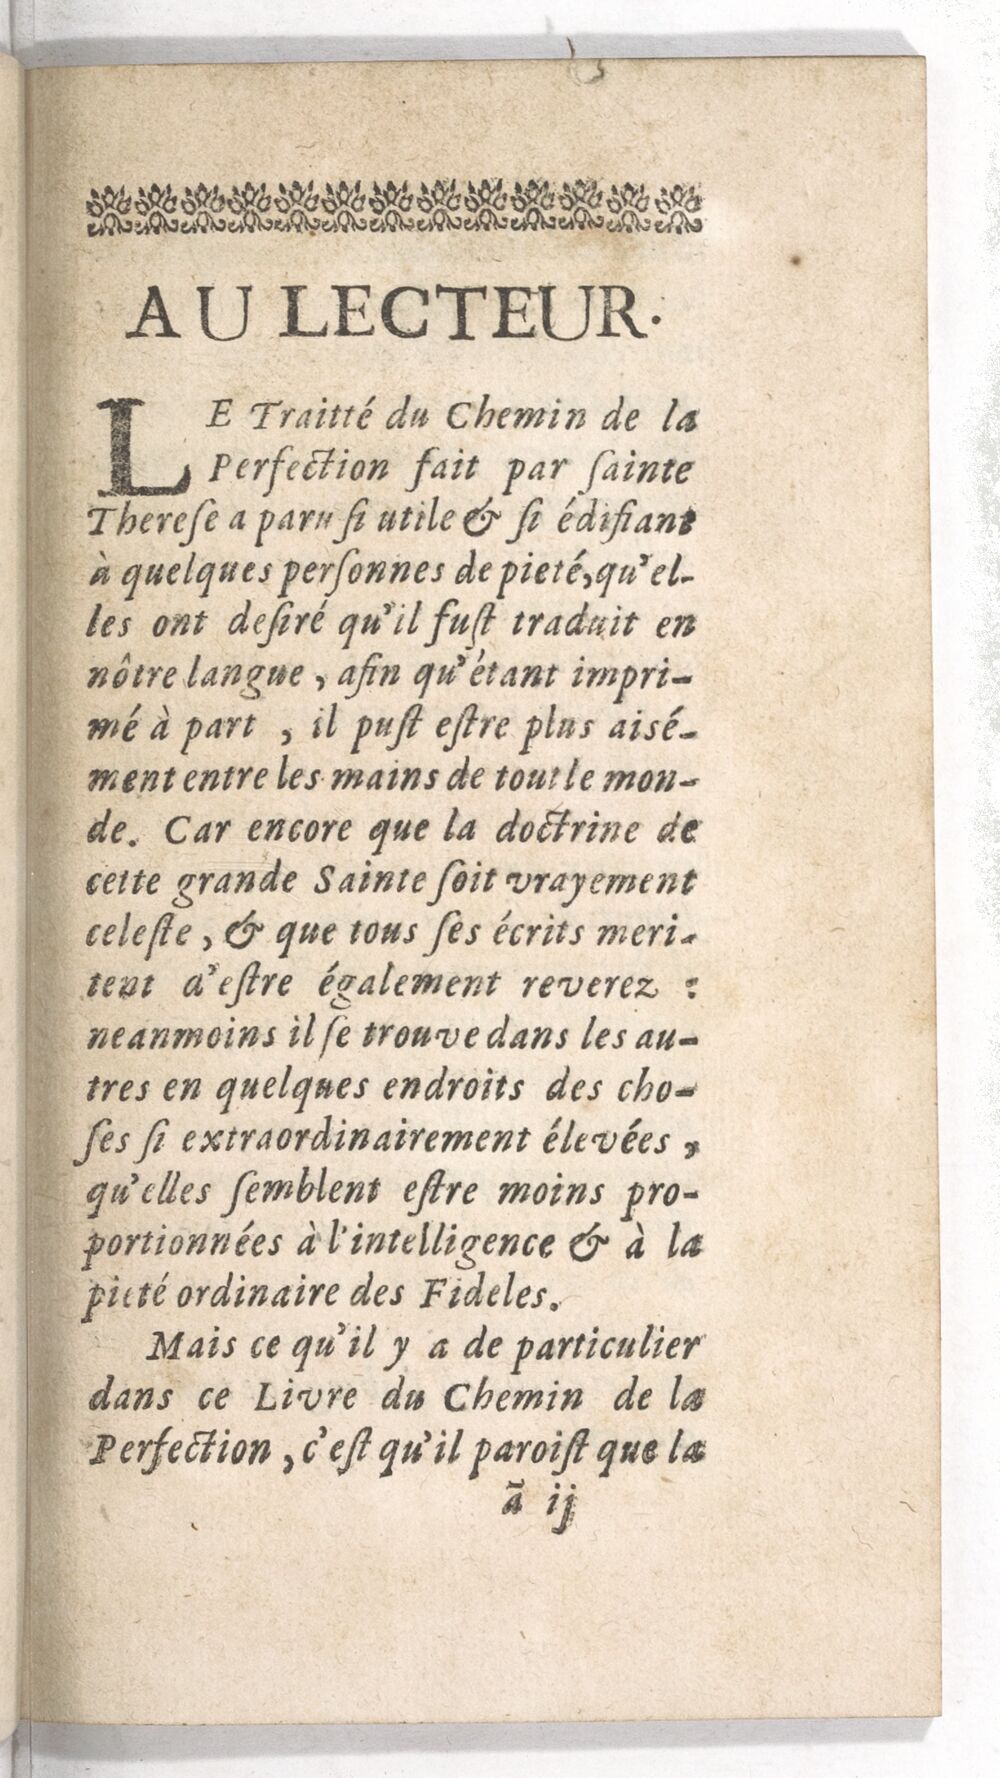 AU LECTEUR.
LE Traitté du Chemin de la
Perfection fait par ſainte
Thereſe a paru ſi utile & ſi édifiant
à quelques perſonnes de pieté, qu'el-
les ont deſiré qu'il fuſt traduit en
nôtre langue, afin qu'étant impri-
mé à part, il puſt eſtre plus aisé-
ment entre les mains de tout le mon-
de. Car encore que la doctrine de
cette grande Sainte ſoit vrayement
celeſte, & que tous ſes écrits meri-
tent d'eſtre également reverez :
neanmoins il ſe trouve dans les au-
tres en quelques endroits des cho-
ſes ſi extraordinairement élevées,
qu'elles ſemblent eſtre moins pro-
portionnées à l'intelligence & à la
pieté ordinaire des Fideles.
Mais ce qu'il y a de particulier
dans ce Livre du Chemin de la
Perfection, c'eſt qu'il paroiſt que la
ã ij